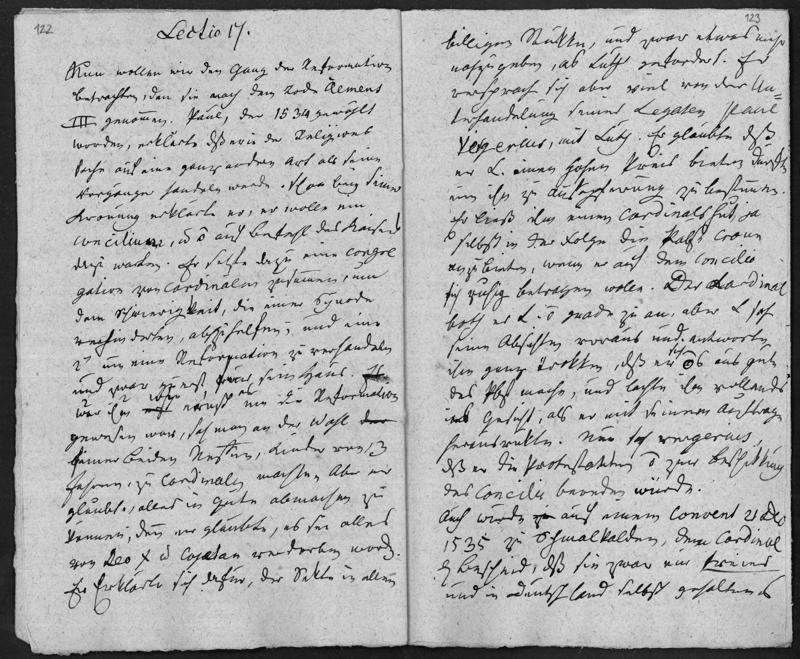 122
Lectio 17.
Nun wollen wir den Gang der Reformation
betrachten, den sie nach dem Tode Klemens
III genommen. Paul, der 1534 gewählt
worden, erklärte daß er in der Religions
Sache auf eine ganz andere Art als seine
Vorgänger handeln werde. bey seiner
Krönung erklärte er, er wolle ein
Concilium, auf Befehl des Kaisers
warten. Er setzte dazu eine Congre
gation von Cardinalen zusammen, um
dem Schwierigkeit, die einer Synode
verhinderten, abzuhelfen; und eine
2te um eine Reformation zu verhandeln
und zwar zuerst für sein Haus.
wie ihm ernst um die Reformation
gewesen war, sah man an der Wahl
seiner beiden Neffen, Kinder von 13
Jahren, zu Cardinalen machte. Aber er
glaubte, alles in Güte abmachen zu
können, denn er glaubte, es sei alles
von Leo X u Cajetan verdorben word.
Er erklärte sich dafür, der Sekte in allen
123
billigen Stükken, und zwar etwas mehr
nachzugeben, als Luth gefordert. Er
versprach sich aber viel von der Un=
terhandlung seines Legaten Paul
Vergerius, mit Luth. Er glaubte daß
er L. einen hohen Preis bieten dürfte
um ihn zu zu bestimmen.
Er ließ ihm einen Cardinalshut, ja
selbst in der Folge die Pabst Crone
anzubieten, wenn er auf dem Concilio
sich ruhig betragen wolle. Der Kardinal
both er L. grade zu an, aber L sah
seine Absichten voraus und antwortete
ihm ganz trokken, daß er sich aus
des Pabst mache, und lachte ihm vollends
ins Gesicht, als er mit seinem Auftrage
herausrükte. Nun sah Vergerius,
daß er die Protestanten zur Beschikung
des Concilii bereden würde.
Auch wurde auf einem Convent 21 Dec
1535 zu Schmalkalden, dem Cardinal
Bescheid, daß sie zwar ein freies
und in Deutschland selbst gehaltenes